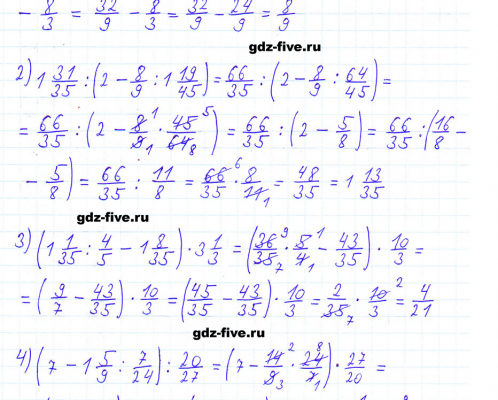 - 8/3 = 32/9 - 8/3 = 32/9 - 24/9 = 8/9
gdz-five.ru
2) 1 31/35 : (2 - 8/9 : 1 19/45) = 66/35 : (2 - 8/9 : 64/45) =
= 66/35 : (2 - 8¹/9₁ · 45⁵/64₈) = 66/35 : (2 - 5/8) = 66/35 : (16/8 -
- 5/8) = 66/35 : 11/8 = 66⁶/35 · 8/11₁ = 48/35 = 1 13/35
gdz-five.ru
3) (1 1/35 : 4/5 - 1 8/35) · 3 1/3 = (36⁹/35₇ · 5¹/4₁ - 43/35) · 10/3 =
= (9/7 - 43/35) · 10/3 = (45/35 - 43/35) · 10/3 = 2/35₇ · 10²/3 = 4/21
gdz-five.ru
4) (7 - 1 5/9 : 7/24) : 20/27 = (7 - 14²/9₃ · 24⁸/7₁) · 27/20 =